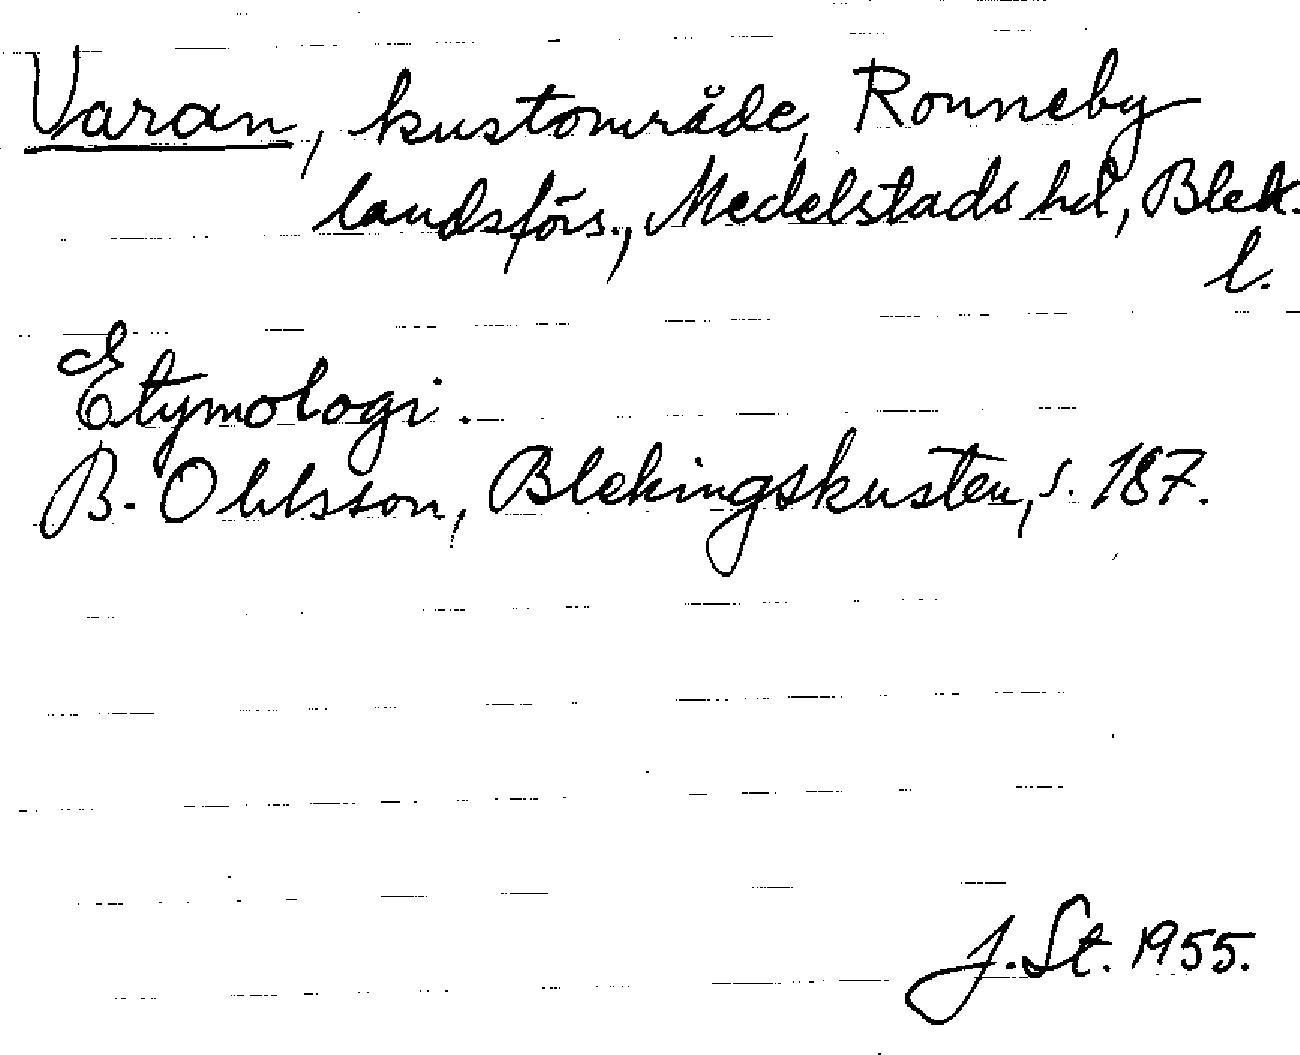 Varan, kustområde, Ronneby
landsförs., Medelstads hd, Blek.
l.
Etymologi.
B. Ohlsson, Blekingskusten, s. 187.
J. St. 1955.